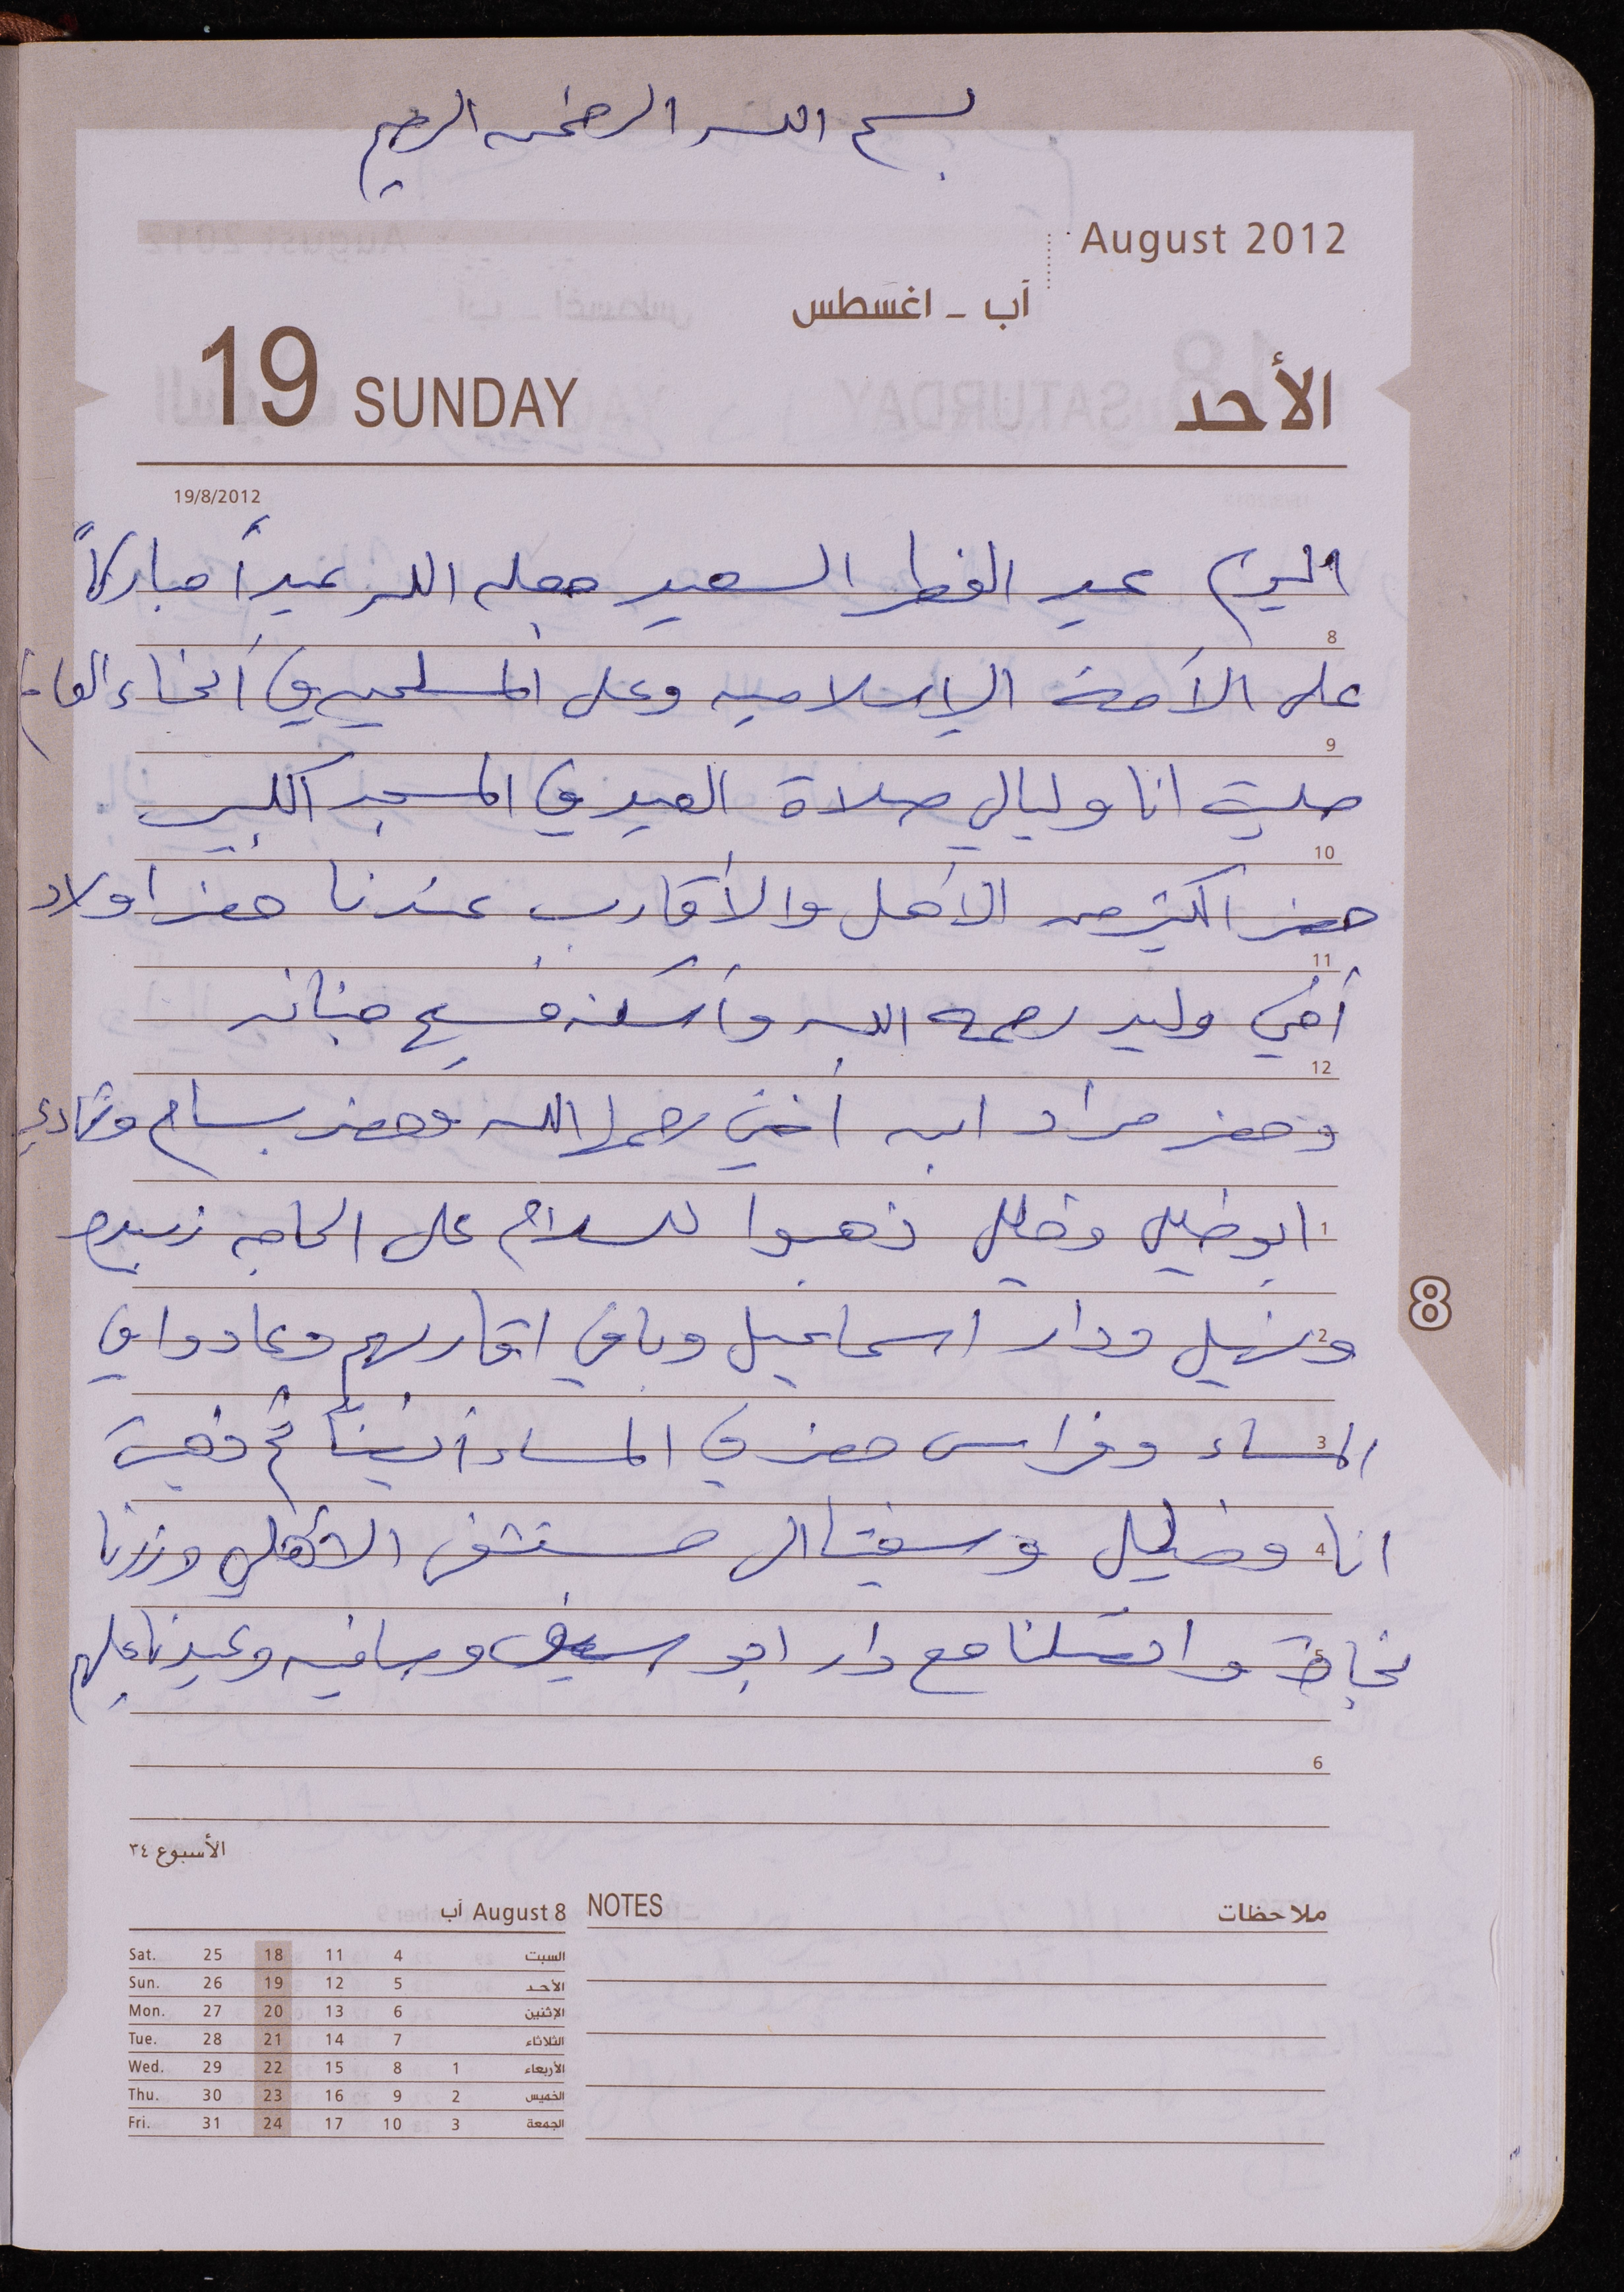 بسم الله الرحمن الرحيم
August 2012
آب - اغسطس
19 SUNDAY الأحد
19/8/2012
اليوم عيد الفطر السعيد جعله الله عيداً مباركاً
8
على الأمة الإسلاميه وعلى المسلمين في أنحاء العالم
9
صليت انا وليالي صلاة العيد في المسجد الكبير
10
حضر اكثر من الأهل والأقارب عندنا حضر اولاد
11
أخي وليد رحمه الله وأسكنه فسيح جنانه
12
وحضر مراد ابن أختي رحمها الله وحضر بسام وشادي
1 ابو خليل وخليل ذهبوا للسلام على الحاجه زبيده
2 ونبيل ودار اسماعيل وباقي اقاربهم وعادوا في
3 المساء وفراس حضر في المساء أيضاً ثم ذهبت
4 انا وخليل و الى مستشفى الأهلي وزرنا
5 نجاة واتصلنا مع دار ابو سيف وصافيه وعيدنا عليهم
6
الأسبوع ٣٤
آب August 8
Sat. 25 18 11 4 السبت
Sun. 26 19 12 5 الأحد
Mon. 27 20 13 6 الإثنين
Tue. 28 21 14 7 الثلاثاء
Wed. 29 22 15 8 1 الأربعاء
Thu. 30 23 16 9 2 الخميس
Fri. 31 24 17 10 3 الجمعة
NOTES ملاحظات
8